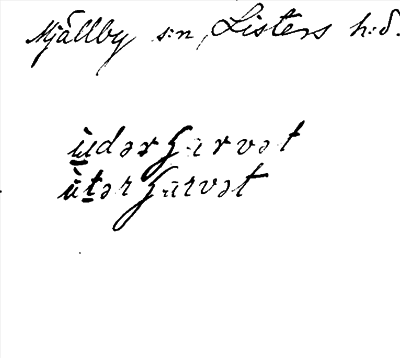 Mjällby s:n, Listers h:d.
ùdərgarvət
ùtərgarvət